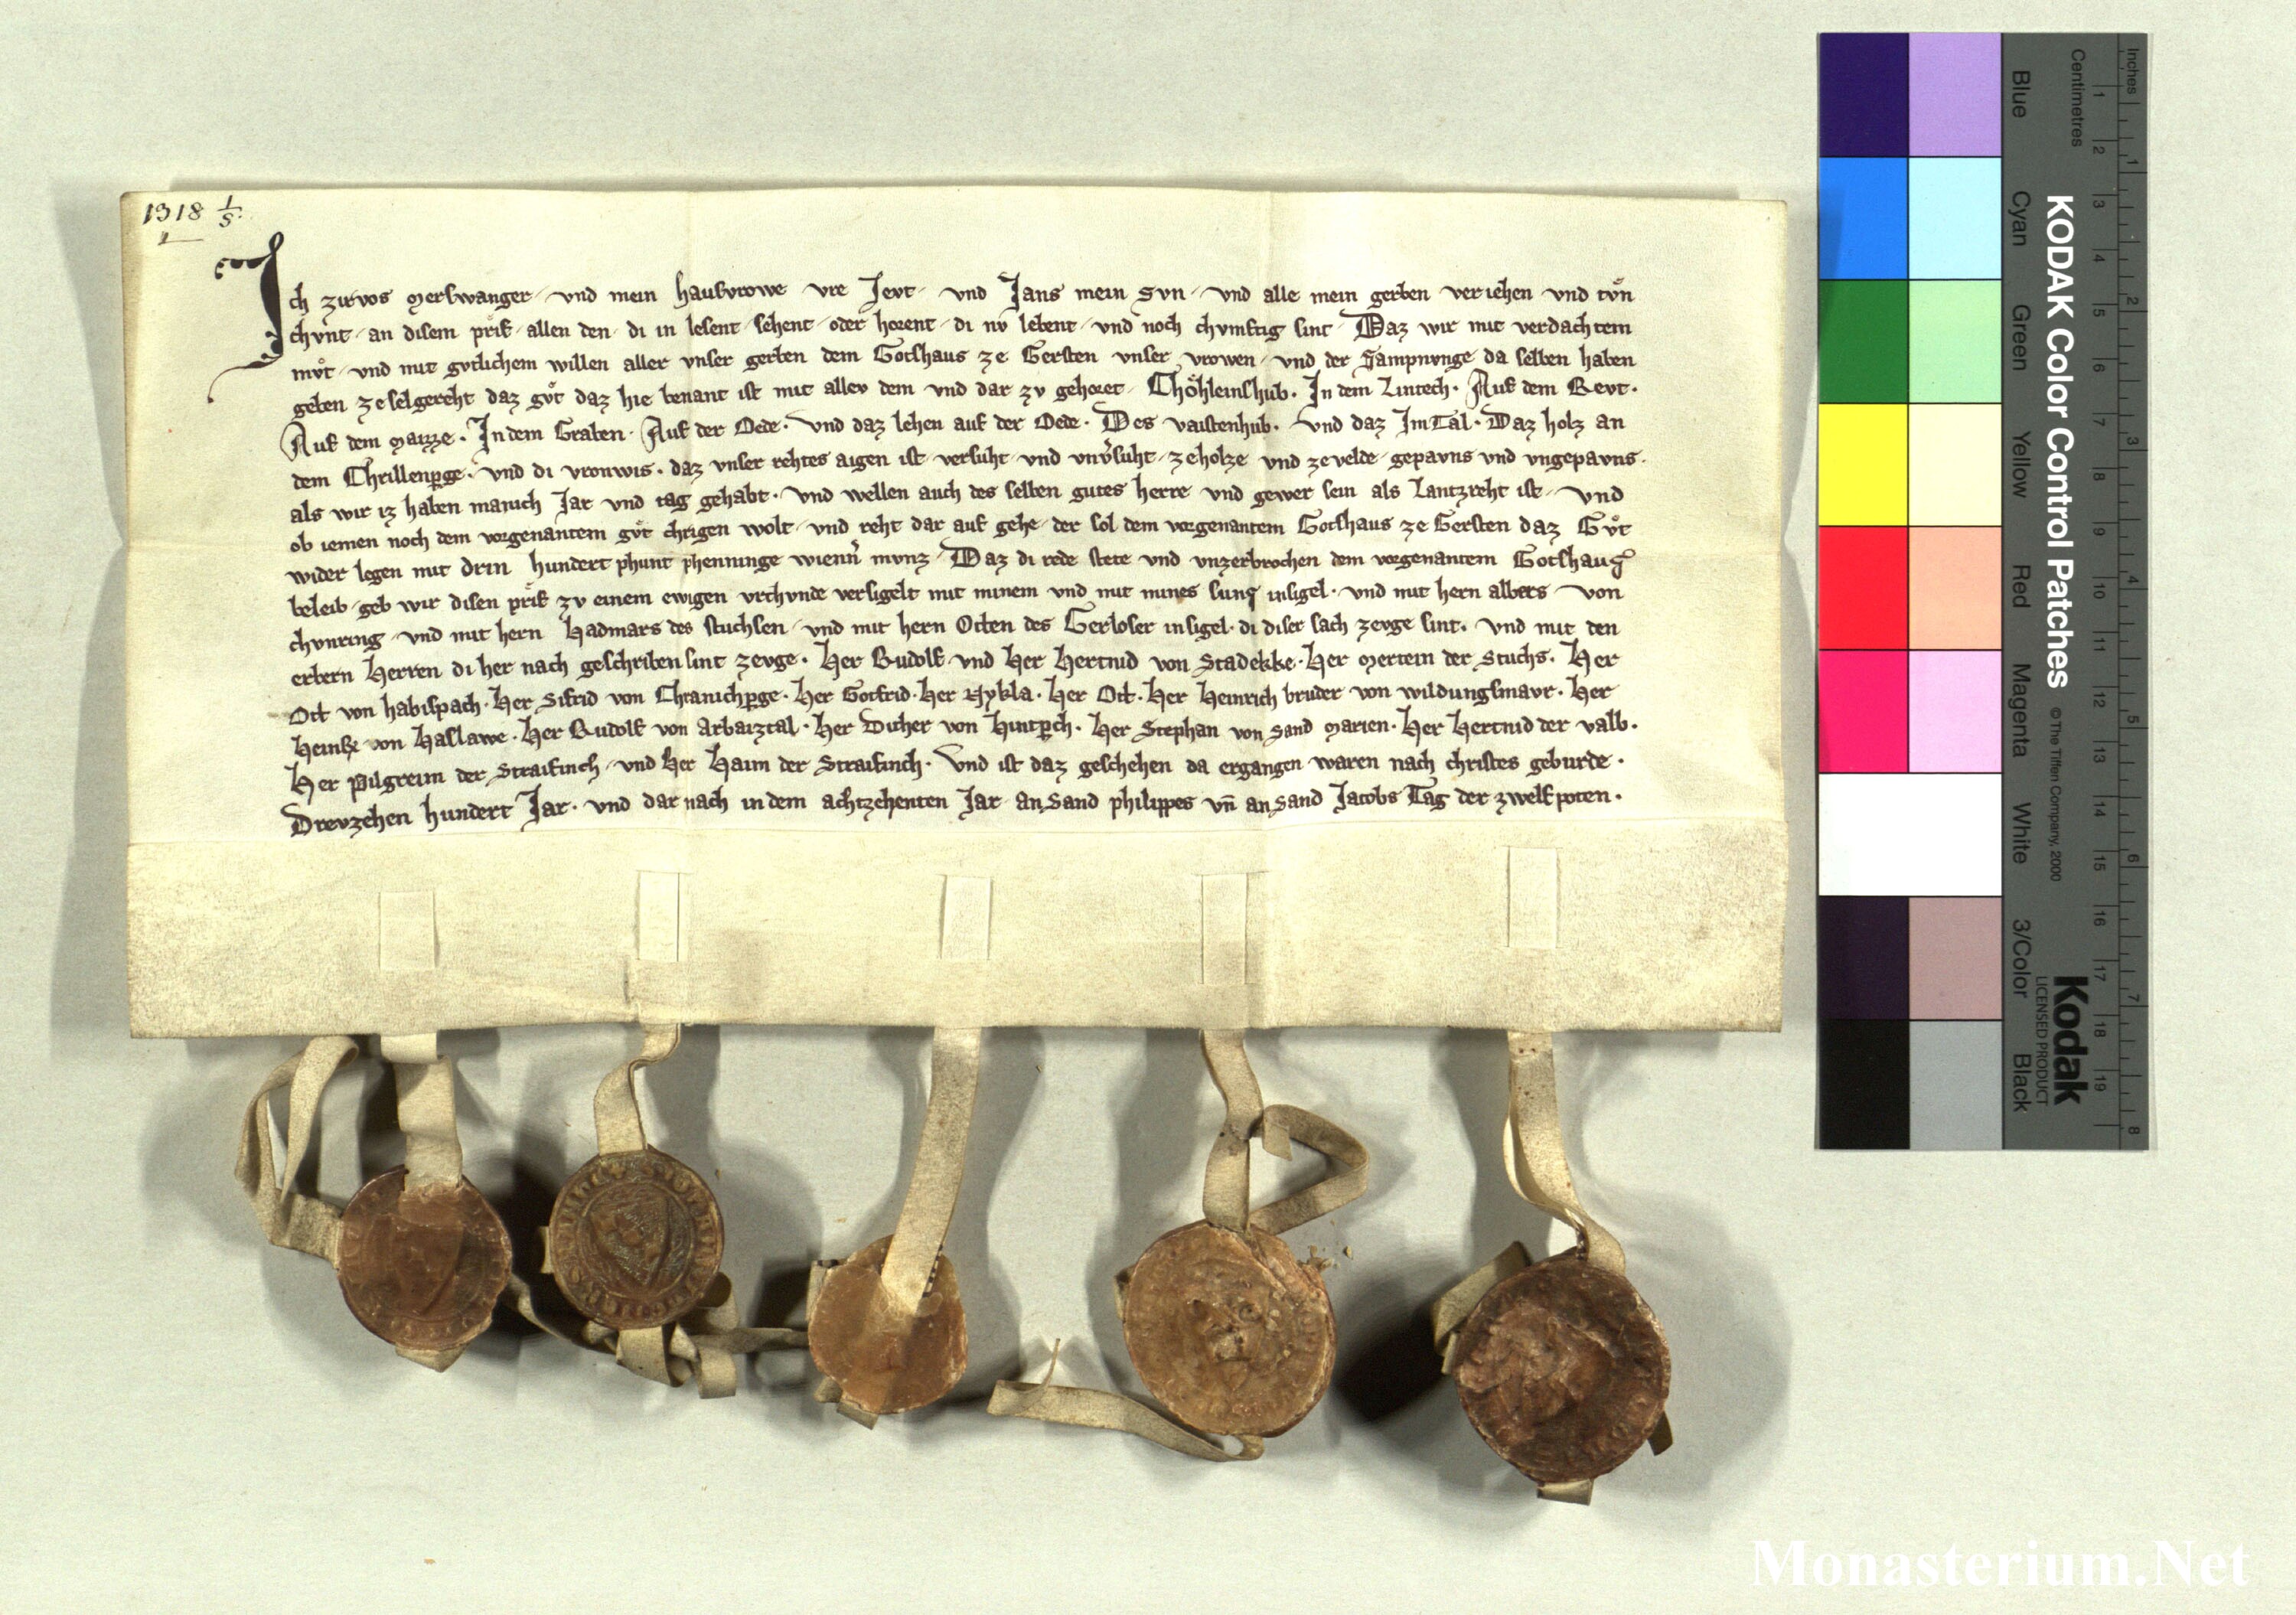 1318 1/5.
Ich zirvos merswanger und mein hausvrowe vre Jevt und Jans mein svn und alle mein gerben veriehen und tvͦn
chvnt an disem prief allen den di in lesent sehent oder horent di nv lebent und noch chvmftig sint Daz wir mit verdachtem
mvͦt und mit gvtlichem willen aller vnser gerben dem Gotshaus ze Gersten vnser vrowen und der Sampnvnge da selben haben
geben ze selgereht daz gvͦt daz hie benant ist mit allev dem und dar zv gehoret Chöhleinshub. In dem Lintech. Auf dem Revt.
Auf dem maizze. In dem Graben. Auf der Oede. Und daz lehen auf der Oede. Des vaistenhub. Und daz Im Tal. Daz holz an
dem Chrillenpge. Und di vronwis. daz vnser rehtes aigen ist versuht und vnv̓suht ze holze und ze velde gepavns und vngepavns.
als wir iz haben manich Jar und tag gehabt. Und wellen auch des selben gutes herre und gewer sein als Lantzreht ist. Und
ob iemen noch dem vorgenantem gvͦt chrigen wolt und reht dar auf gehe der sol dem vorgenantem Gotshaus ze Gersten daz Gvͦt
wider legen mit drin hundert phunt phenninge wienn̓ mvnz. Daz di rede stete und vnzerbrochen dem vorgenantem Gotshaus
beleib geb wir disen prief zv einem ewigen vrchvnde versigelt mit minem und mit mines suns insigel. und mit hern albers von
chvnring und mit hern Hadmars des stuchsen und mit hern Otten des Gerloser insigel. di diser sach zevge sint. Und mit den
erbern Herren di her nach geschriben sint zevge. Her Rudolf und Her Hertnid von Stadekke. Her mertein der Stuchs. Her
Ott von habispach. Her Sifrid von Chranichpge. Her Gotfrid. Her Nykla. Her Ott. Her Heinrich bruder von wildungsmavr. Her
Heinr von Haslawe. Her Rudolf von Arbaiztal. Her Dicher von Hintpch. Her Stephan von sand marien. Her Hertnid der valb.
Her pilgreim der Straifinch und Her Haim der Straifinch. Und ist daz geschehen da ergangen waren nach christes geburde.
Drevzehen hundert Jar. und dar nach in dem achtzehenten Jar an Sand philippes vn̄ an sand Jacobs Tag der zwelfpoten.
KODAK Color Control Patches © The Tiffen Company, 2000 Kodak LICENSED PRODUCT
Blue Cyan Green Yellow Red Magenta White 3/Color Black
Centimetres 1 2 3 4 5 6 7 8 9 10 11 12 13 14 15 16 17 18 19
Inches 1 2 3 4 5 6 7 8
Monasterium.Net